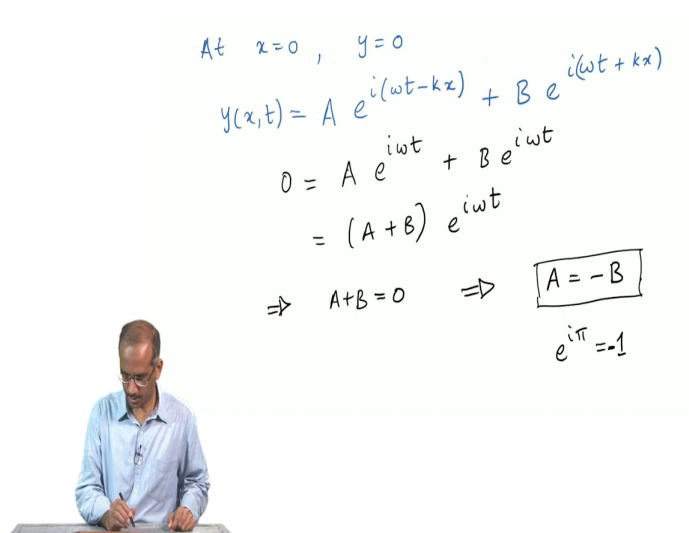 At x=0, y=0
y(x,t) = A e^{i(ωt-kx)} + B e^{i(ωt+kx)}
0 = A e^{iωt} + B e^{iωt}
= (A+B) e^{iωt}
⇒ A+B=0 ⇒ A=-B
e^{iπ}=-1